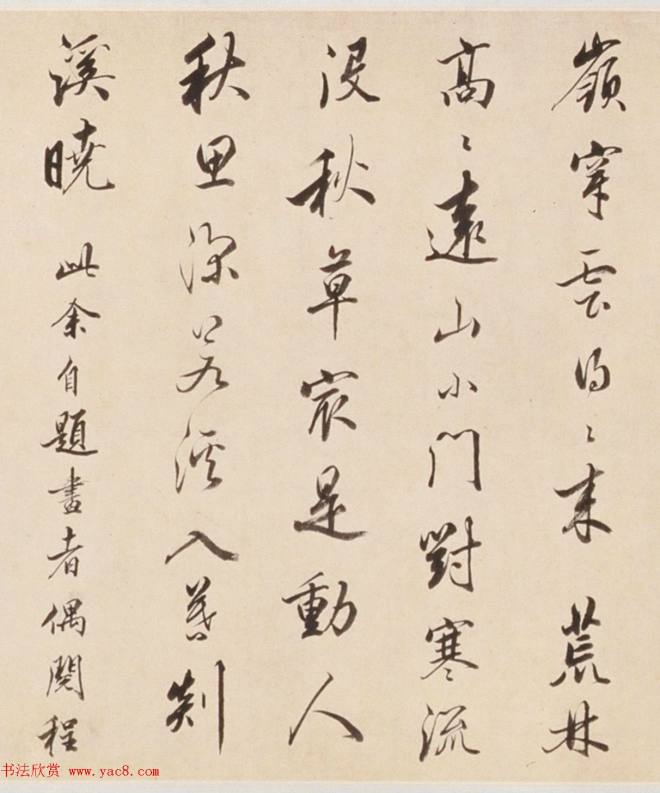 嶺穿雲得〻來荒林
高〻遠山小門對寒流
没秋草最是動人
秋思深若溪入暮剡
溪曉 此余自題畫者偶閱程
书法欣赏 www.yac8.com